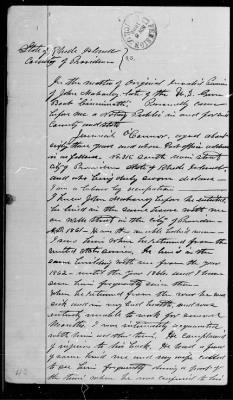 State of Rhode Island
County of Providence } ss.
In the matter of Original Invalid Claim
of John Mahoney late of the U.S. Gun
Boat Cincinnatti. Personally came
before me a Notary Public in and for said
County and State
Jeremiah O'Connor, aged about
fifty three years and whose Post office address
is as follows. No 116 South Main Street
City of Providence State of Rhode Island
and who being duly sworn declares
I am a laborer by occupation
I knew John Mahoney before he enlisted.
he lived in the same house with me
on Mill Street in the City of Providence
A.D. 1861. He was an able bodied man
I was here when he returned from the
United States Service. He lived in the
same building with me from the year
1862 until the year 1866 and I have
seen him frequently since then
when he returned from the war he was
sick and in very bad health and was
entirely unable to work for several
Months, I was intimately acquainted
with him at that time. He complained
of injuries to his back. He had a fever
of some kind me and my wife called
to see him frequently during a part of
the time when he was confined to his